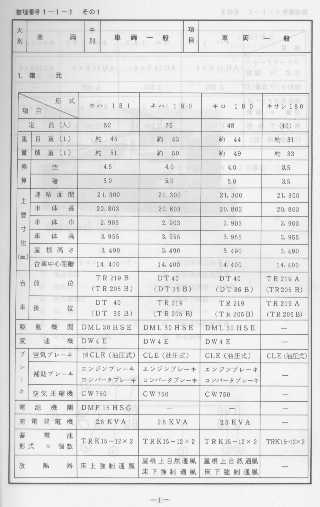 整理番号1-1-1 その1
大別 車両 中別 車両一般 項目 車両一般
1. 諸元
形式 項目 キハ181 キハ180 キロ180 キサシ180
定員(人) 52 76 48 (40)
自重(t) 約 約 約 44 約
積重(t) 約 約 50 約 49 約 33
空 4.5 4.0 4.0 3.5
積 5.0 5.0 5.0 3.5
連結面間 21.300 21.300 21.300 21.300
車体長 20.803 20.803 20.803 20.803
車体巾 2.903 2.903 2.903 2.903
車体高 3.955 3.955 3.955
屋根高さ 3.490 3.490 3.490 3.490
台車中心距離 14.400 14.400 14.400 14.400
台車 前位 TR219B (TR205B) DT40 (DT36B) DT40 (DT36B) TR219A (TR205B)
後位 DT40 (DT36B) TR219 (TR205B) TR219 (TR205B) TR219A (TR205B)
駆動機関 DML30HSE DML30HSE DML30HSE —
変速機 DW4E DW4E DW4E —
ブレーキ 空気ブレーキ CLE(油圧式) CLE(油圧式) CLE(油圧式) CLE(油圧式)
補助ブレーキ エンジンブレーキ エンジンブレーキ エンジンブレーキ —
コンバータブレーキ コンバータブレーキ コンバータブレーキ
空気圧縮機 CW750 CW750 CW750 —
電源機関 DMF15HSG — — —
充電発電機 2.5KVA 2.5KVA 2.5KVA —
蓄電池 形式×個数 TRK15-12×2 TRK15-12×2 TRK15-12×2 TRK15-12×2
放熱器 床上強制通風 屋根上自然通風 屋根上自然通風 —
床下強制通風 床下強制通風
—1—